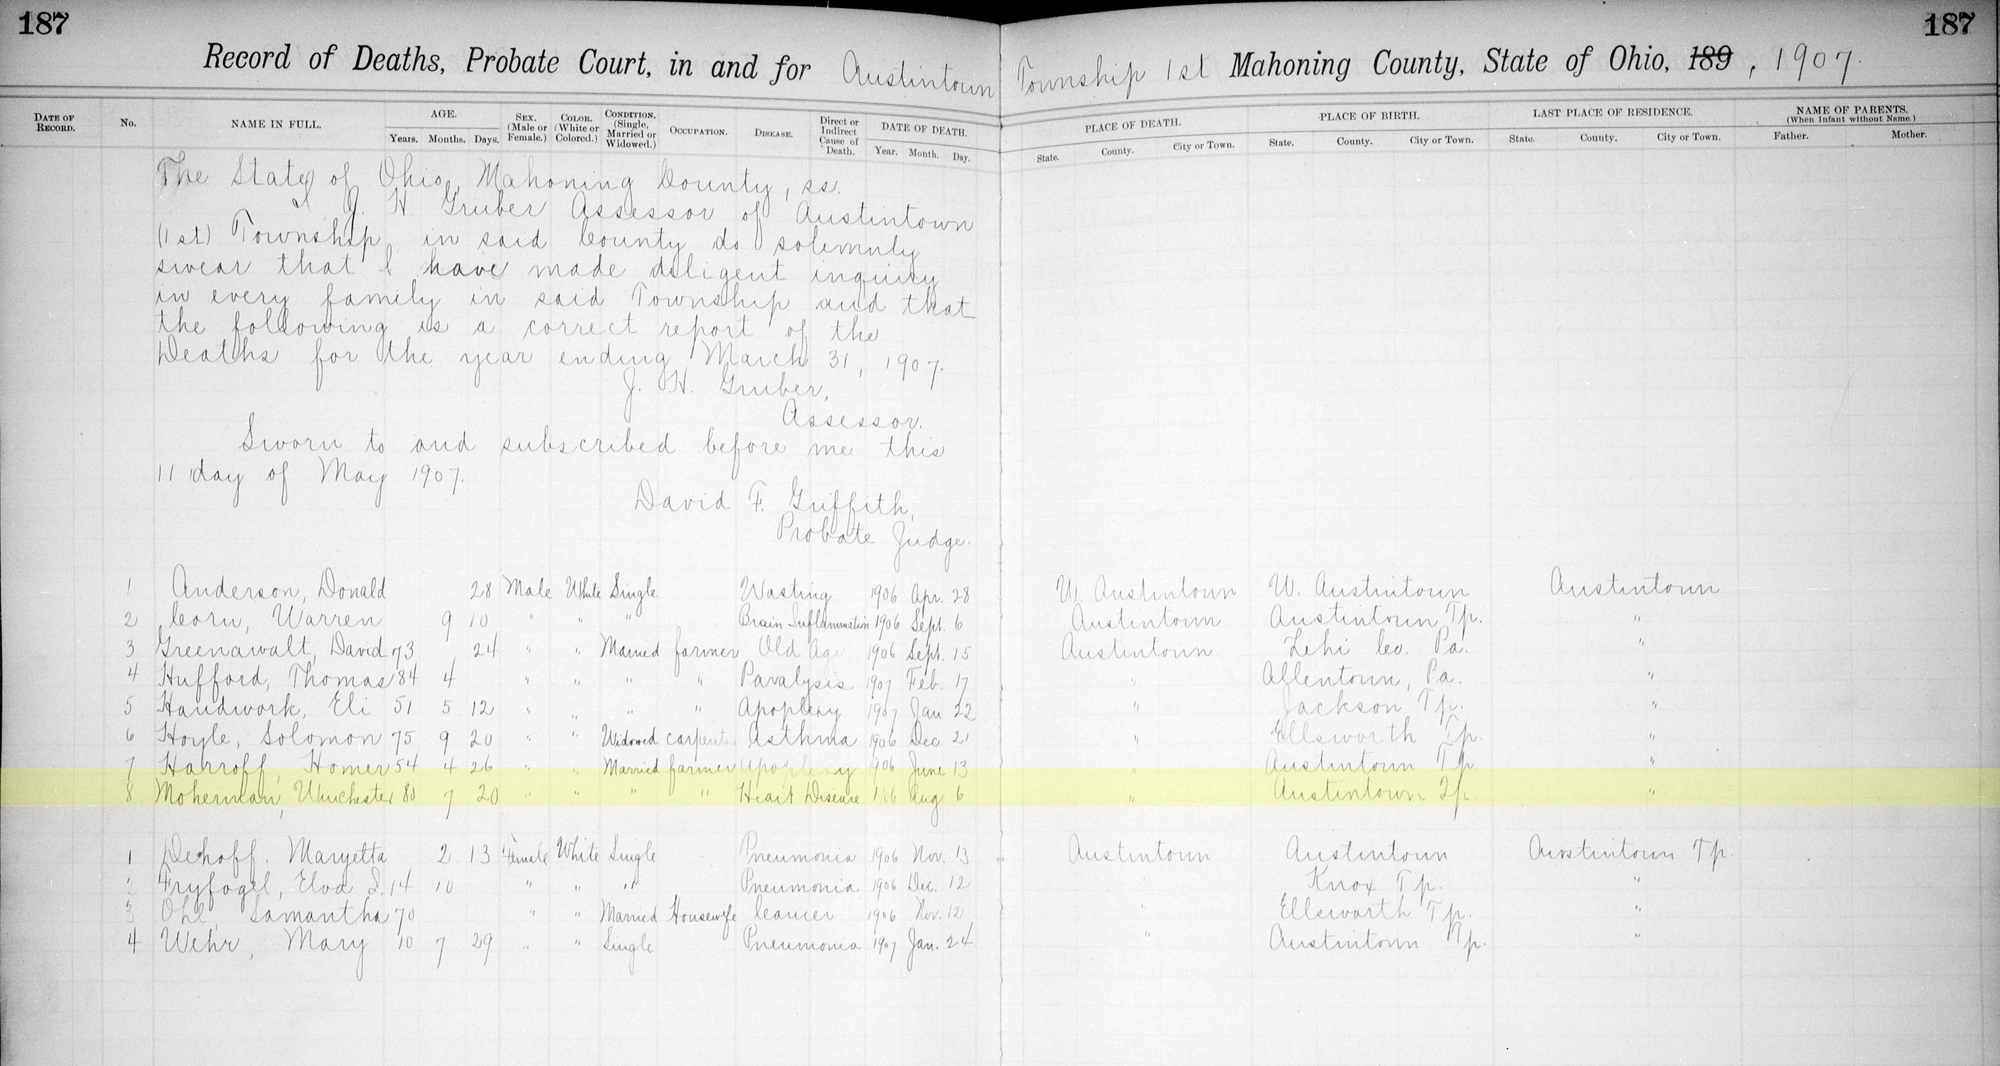 187
187
Record of Deaths, Probate Court, in and for Austintown Township 1st Mahoning County, State of Ohio, 189, 1907.
DATE OF RECORD. No. NAME IN FULL. AGE. Years. Months. Days. SEX. (Male or Female.) COLOR. (White or Colored.) CONDITION. (Single, Married or Widowed.) OCCUPATION. DISEASE. Direct or Indirect Cause of Death. DATE OF DEATH. Year. Month. Day. PLACE OF DEATH. State. County. City or Town. PLACE OF BIRTH. State. County. City or Town. LAST PLACE OF RESIDENCE. State. County. City or Town. NAME OF PARENTS. (When Infant without Name.) Father. Mother.
The State of Ohio, Mahoning County, ss.
I J. H Gruber Assessor of Austintown
(1st) Township, in said County do solemnly
swear that I have made diligent inquiry
in every family in said Township and that
the following is a correct report of the
Deaths for the year ending March 31, 1907.
J. H. Gruber,
Assessor.
Sworn to and subscribed before me this
11 day of May 1907.
David F. Griffith,
Probate Judge.
1 Anderson, Donald 28 Male White Single Wasting 1906 Apr. 28 W. Austintown W. Austintown Austintown
2 Corn, Warren 9 10 " " " Brain Inflammation 1906 Sept. 6 Austintown Austintown Tp. "
3 Greenawalt, David 73 24 " " Married farmer Old Age 1906 Sept. 15 Austintown Lehi Co. Pa. "
4 Hufford, Thomas 84 4 " " " " Paralysis 1907 Feb. 17 " Allentown, Pa. "
5 Handwork, Eli 51 5 12 " " " " Apoplexy 1907 Jan 22 " Jackson Tp. "
6 Hoyle, Solomon 75 9 20 " " Widowed carpenter Asthma 1906 Dec 21 " Ellsworth Tp. "
7 Harroff, Homer 54 4 26 " " Married farmer Apoplexy 1906 June 13 " Austintown Tp. "
8 Moherman, Winchester 80 7 20 " " " " Heart Disease 1906 Aug 6 " Austintown Tp "
1 Dehoff, Maryetta 2 13 Female White Single Pneumonia 1906 Nov. 13 Austintown Austintown Austintown Tp.
2 Fryfogel, Elva I. 14 10 " " " Pneumonia 1906 Dec. 12 Knox Tp. "
3 Ohl, Samantha 70 " " Married Housewife Cancer 1906 Nov. 12 " Ellsworth Tp. "
4 Wehr, Mary 10 7 29 " " Single Pneumonia 1907 Jan. 24 " Austintown Tp. "